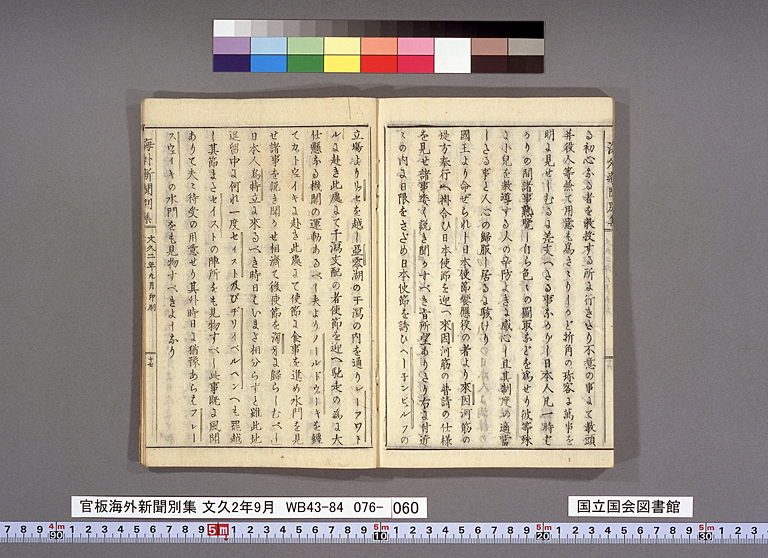 る初心なる者を教授する所に行きたり不意の事にて教頭
并役人等兼て用意も為さゞりしかど折角の珍客に萬事を
明に見せしむるに差支へざる事なりし日本人凡一時
かりの間諸事熟覧し自ら色々の圖取などを為せり彼等殊
に小兒を教導する人の辛防よきに感心し且其制度の適當
したる事と人心の歸服し居るに驚けり
國王より命ぜられし日本使節饗應役の者より來因河筋の
堤方奉行へ掛合ひ日本使節を迎へ來因河筋の普請の仕様
を見せ諸事委く説き聞かすべき旨所望ありたり右に付近
々の内に日限をさだめ日本使節を誘ひ
立場より を越し亞零湖の干瀉の内を通り
ルに赴き此處にて干瀉支配の者使節を迎へ馳走の為に大
仕懸なる機關の運動あるべし夫よりノールドウーキを經
てカトウエイキに赴き此處にて使節に食事を進め水門を見
せ諸事を説き聞かせ相濟て後使節を海牙に歸らしむべし
日本人 來るべき時日はいまだ相分らずと雖此地
逗留中に何れ一度セイスト及びヂリイベルヘンへも罷越
し其節まさセイストの陣所をも見物すべし此事既に風聞
ありて夫々待受の用意せり其外時日に猶豫あらむフレー
スウエイキの水門をも見物すべきよしなり
海外新聞別集 文久二年九月印刷 十七
官板海外新聞別集 文久2年9月 WB43-84 076-060
国立国会図書館